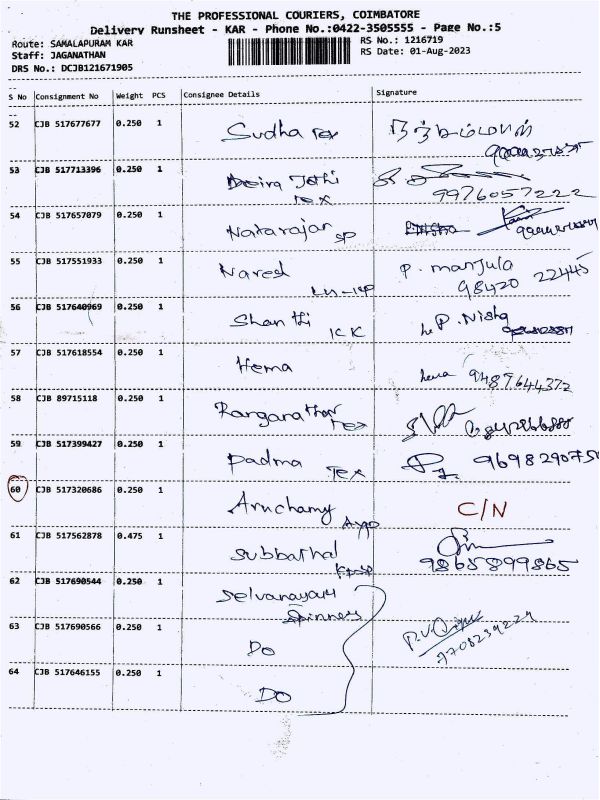 THE PROFESSIONAL COURIERS, COIMBATORE
Delivery Runsheet - KAR - Phone No.:0422-3505555 - Page No.:5
Route: SAMALAPURAM KAR
RS No.: 1216719
Staff: JAGANATHAN
RS Date: 01-Aug-2023
DRS No.: DCJB121671905
S No Consignment No Weight PCS Consignee Details Signature
52 CJB 517677677 0.250 1 Sudha Tex
53 CJB 517713396 0.250 1 Jothi Tex
9976057222
54 CJB 517657079 0.250 1 Natarajan SP
55 CJB 517551933 0.250 1 Naresh P. manjula
98420 22445
56 CJB 517640969 0.250 1 Shanthi KK P. Nisha
57 CJB 517618554 0.250 1 Hema hema 9487644372
58 CJB 89715118 0.250 1 Ranganathan Tex
59 CJB 517399427 0.250 1 Padma Tex 969829075
60 CJB 517320686 0.250 1 Aruchamy C/N
61 CJB 517562878 0.475 1 Subbathal
9865899865
62 CJB 517690544 0.250 1 Selvanayagi
Spinners
63 CJB 517690566 0.250 1 Do 7708239229
64 CJB 517646155 0.250 1 Do